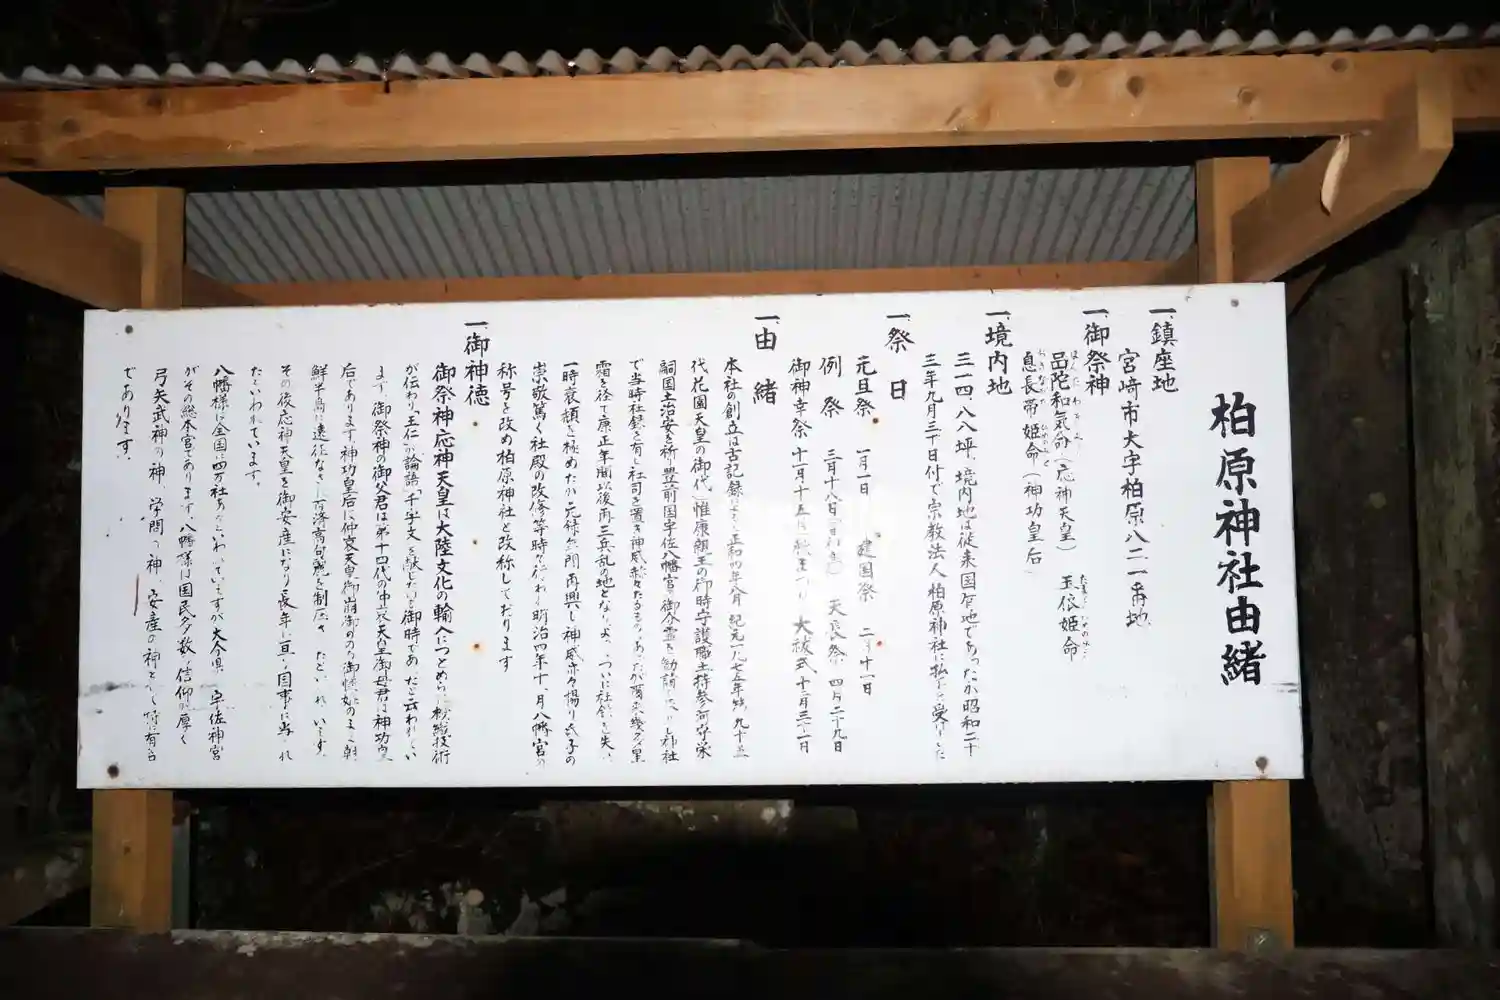 柏原神社由緒
一、鎮座地
宮﨑市大字柏原八二一番地
一、御祭神
品陀和気命（応神天皇） 玉依姫命
息長帯姫命（神功皇后）
一、境内地
三一四・八八坪、境内地は従来国有地であったが昭和二十
三年九月三十日付で宗教法人柏原神社に払下を受けました
一、祭 日
元旦祭 一月一日 建国祭 二月十一日
例 祭 三月十八日 天長祭 四月二十九日
御神幸祭 十一月十五日 大祓式 十二月三十一日
一、由 緒
本社の創立は古記録によると正和四年八月 紀元一九七五年 第九十五
代花園天皇の御代 惟康親王の御時守護職土持参河守栄
嗣国土治安を祈り豊前国宇佐八幡宮の御分霊を勧請 神社
で当時社録を有し社司を置き神威 たるものあったが 星
霜を経て康正年間以後再三兵乱の地となり ついに社録を失い
一時衰頽を極めたが元禄年間再興し神威亦々揚り氏子の
崇敬篤く社殿の改修等時々行われ明治四年十一月八幡宮の
称号を改め柏原神社と改称しております
一、御神徳
御祭神応神天皇は大陸文化の輸入につとめられ 技術
が伝わり、王仁が論語「千字文」を献じたのも御時であったと云われてい
ます 御祭神の御父君は第十四代の仲哀天皇御母君は神功皇
后であります、神功皇后は仲哀天皇御崩御ののち御懐妊のまま朝
鮮半島に遠征なされ百済高句麗を制圧 たといわれています。
その後応神天皇を御安産になり長年に亘り国事に当られ
たといわれています。
八幡様は全国に四万社あるといわれていますが大分県 宇佐神宮
がその総本宮であります、八幡様は国民多数の信仰が厚く
弓矢武神の神、学問の神 安産の神として特に有名
であります。